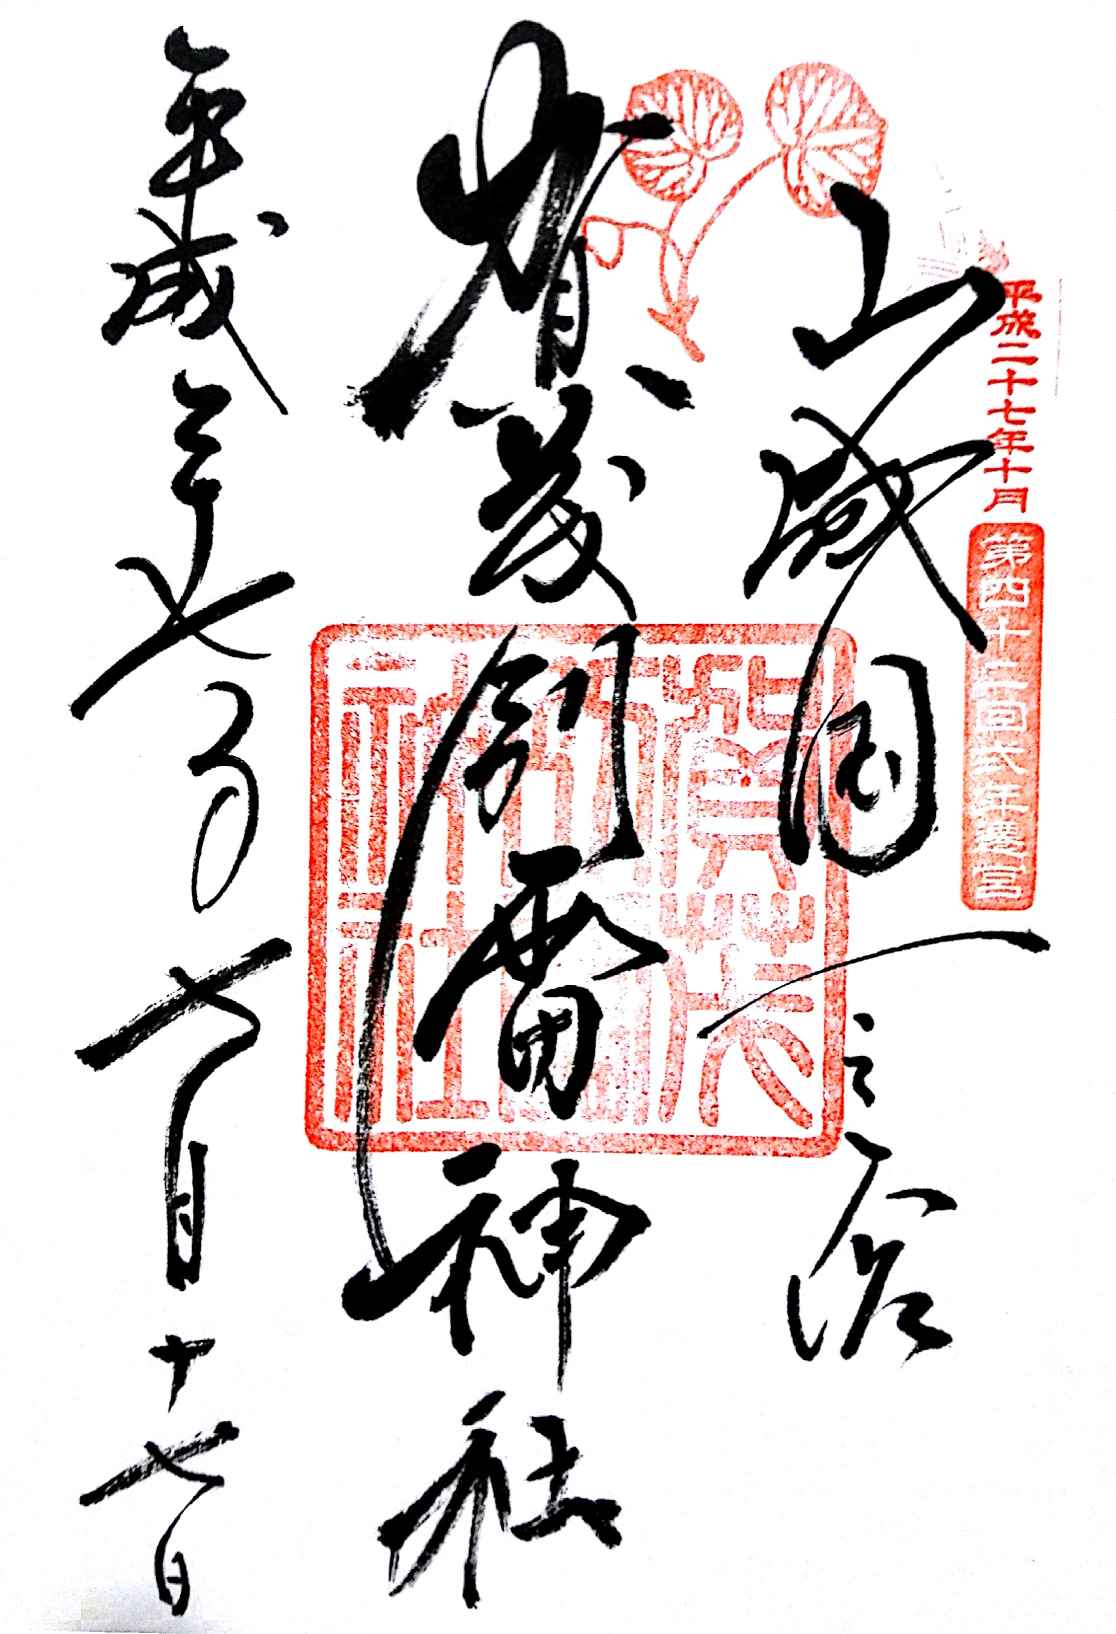 平成二十七年十月
第四十二回式年遷宮
山城国一之宮
賀茂別雷神社
平成二十七年七月十七日
賀茂別雷神社